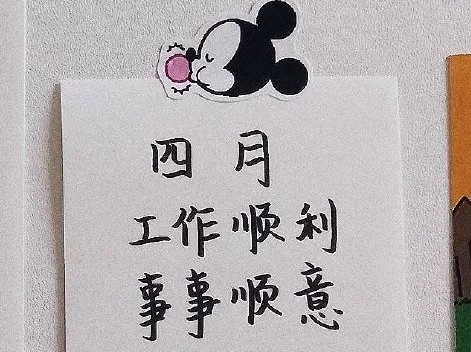 四月
工作顺利
事事顺意